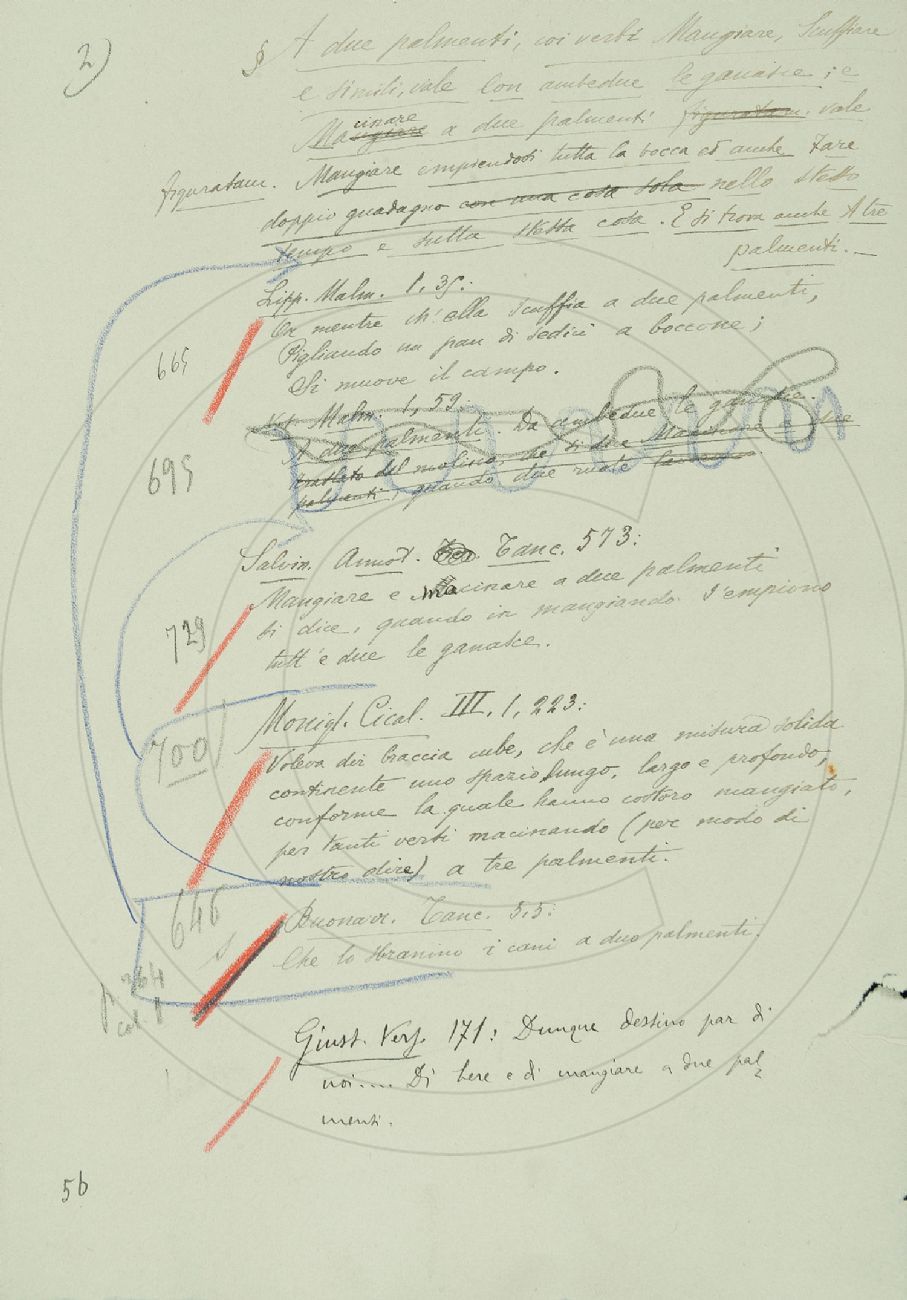 2)
§ A due palmenti, coi verbi Mangiare, Scuffiare
e simili, vale Con ambedue le ganasce; e
Macinare a due palmenti figuratam. vale
figuratam. Mangiare empiendosi tutta la bocca ed anche Fare
doppio guadagno con una cosa sola nello stesso
tempo e sulla stessa cosa. E si trova anche A tre
palmenti.—
Lipp. Malm. 1, 35:
665
Or mentre ch'ella scuffia a due palmenti,
Pigliando un pan di sedici a boccone;
Si muove il campo.
Not. Malm. 1, 59.
695
A due palmenti. Da ambedue le ganasce.
traslato dal molino che si dice Macinare a due
palmenti, quando due ruote
Salvin. Annot. Tanc. 573:
729
Mangiare e macinare a due palmenti
si dice, quando in mangiando s'empiono
tutt'e due le ganasce.
Monigl. Cical. III, 1, 223:
700
Voleva dir braccia cube, che è una misura solida
continente uno spazio lungo, largo e profondo,
conforme la quale hanno costoro mangiato,
per tanti versi macinando (per modo di
nostro dire) a tre palmenti.
646
Buonarr. Tanc. 5.5:
Che lo sbranino i cani a duo palmenti.
p. 264
col. 1
Giust. Vers. 171: Dunque destino par di
noi.... Di bere e di mangiare a due pal-
menti.
56